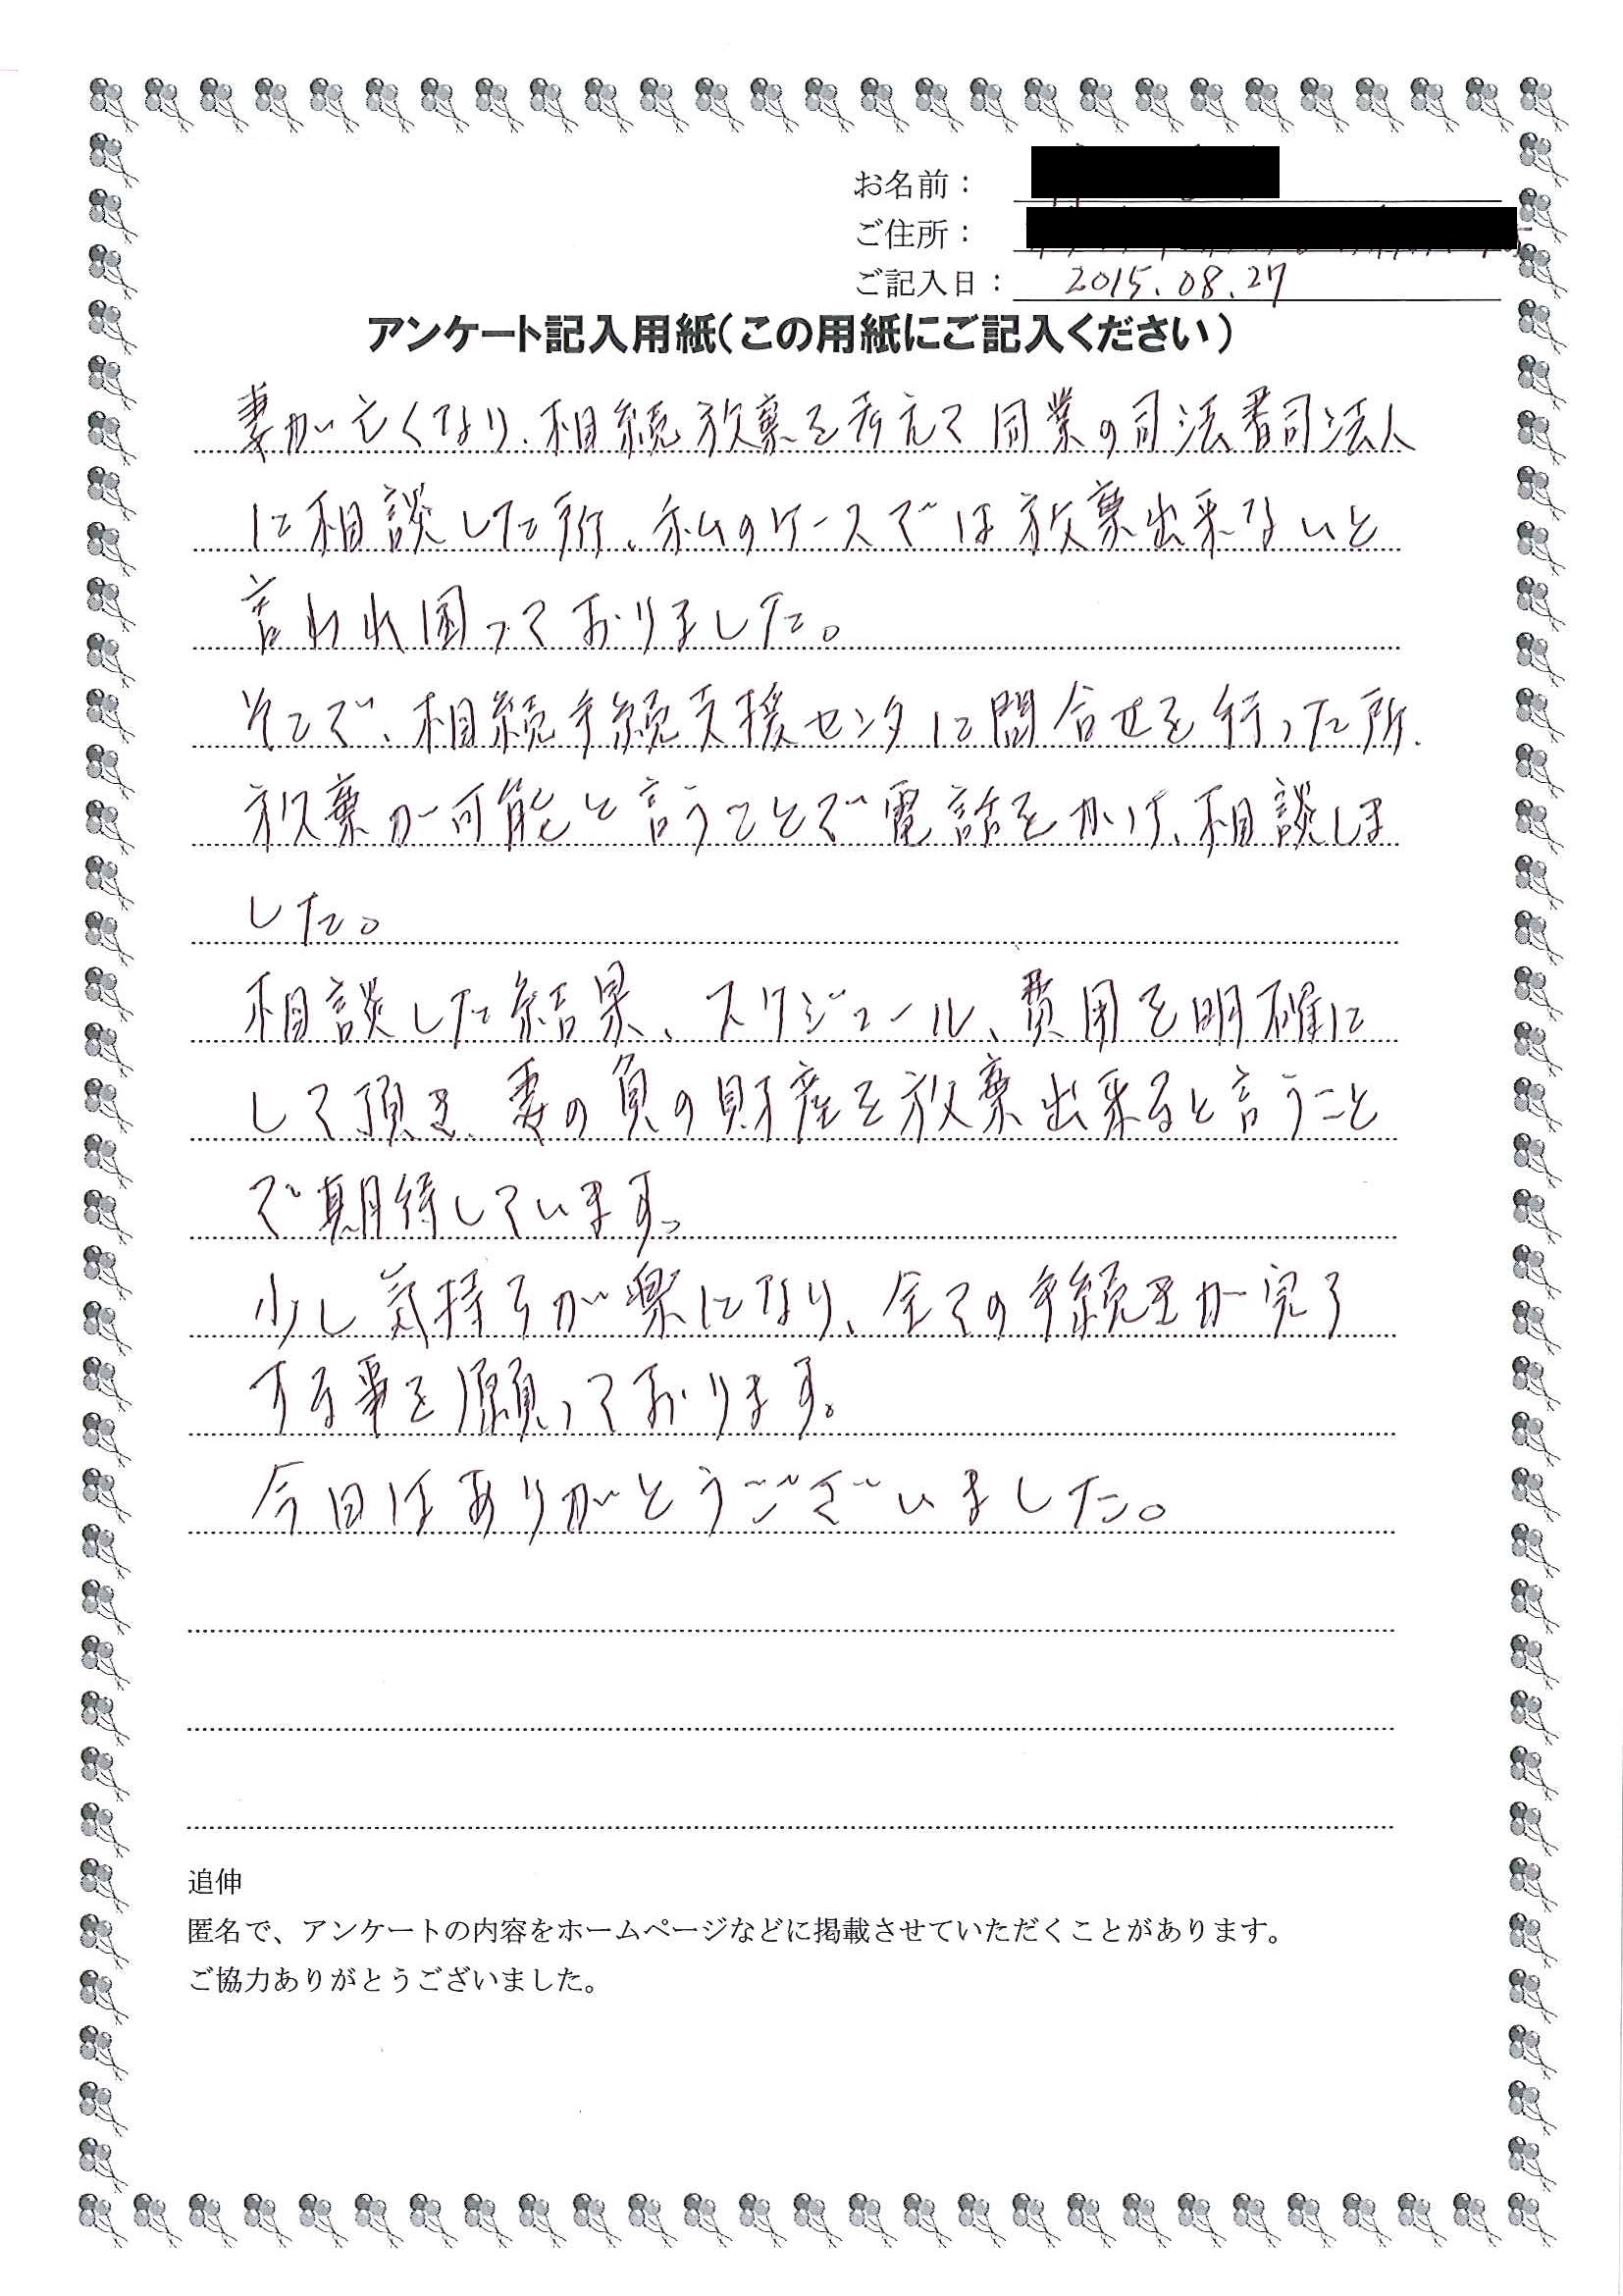 お名前：
ご住所：
ご記入日： 2015.08.27
アンケート記入用紙（この用紙にご記入ください）
妻が亡くなり、相続放棄を考えて同業の司法書司法人
に相談した所、私のケースでは放棄出来ないと
言われ困っておりました。
そこで、相続手続支援センタに問合せを行った所、
放棄が可能と言うことで電話をかけ、相談しま
した。
相談した結果、スケジュール、費用を明確に
して頂き、妻の負の財産を放棄出来ると言うこと
で期待しています。
少し気持ちが楽になり、全ての手続きが完了
する事を願っております。
今日はありがとうございました。
追伸
匿名で、アンケートの内容をホームページなどに掲載させていただくことがあります。
ご協力ありがとうございました。